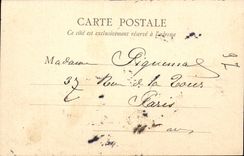 CARTE POSTALE
Ce côté est exclusivement réservé à l'adresse
Madame Piquenal
37 Rue de la Tour
Paris